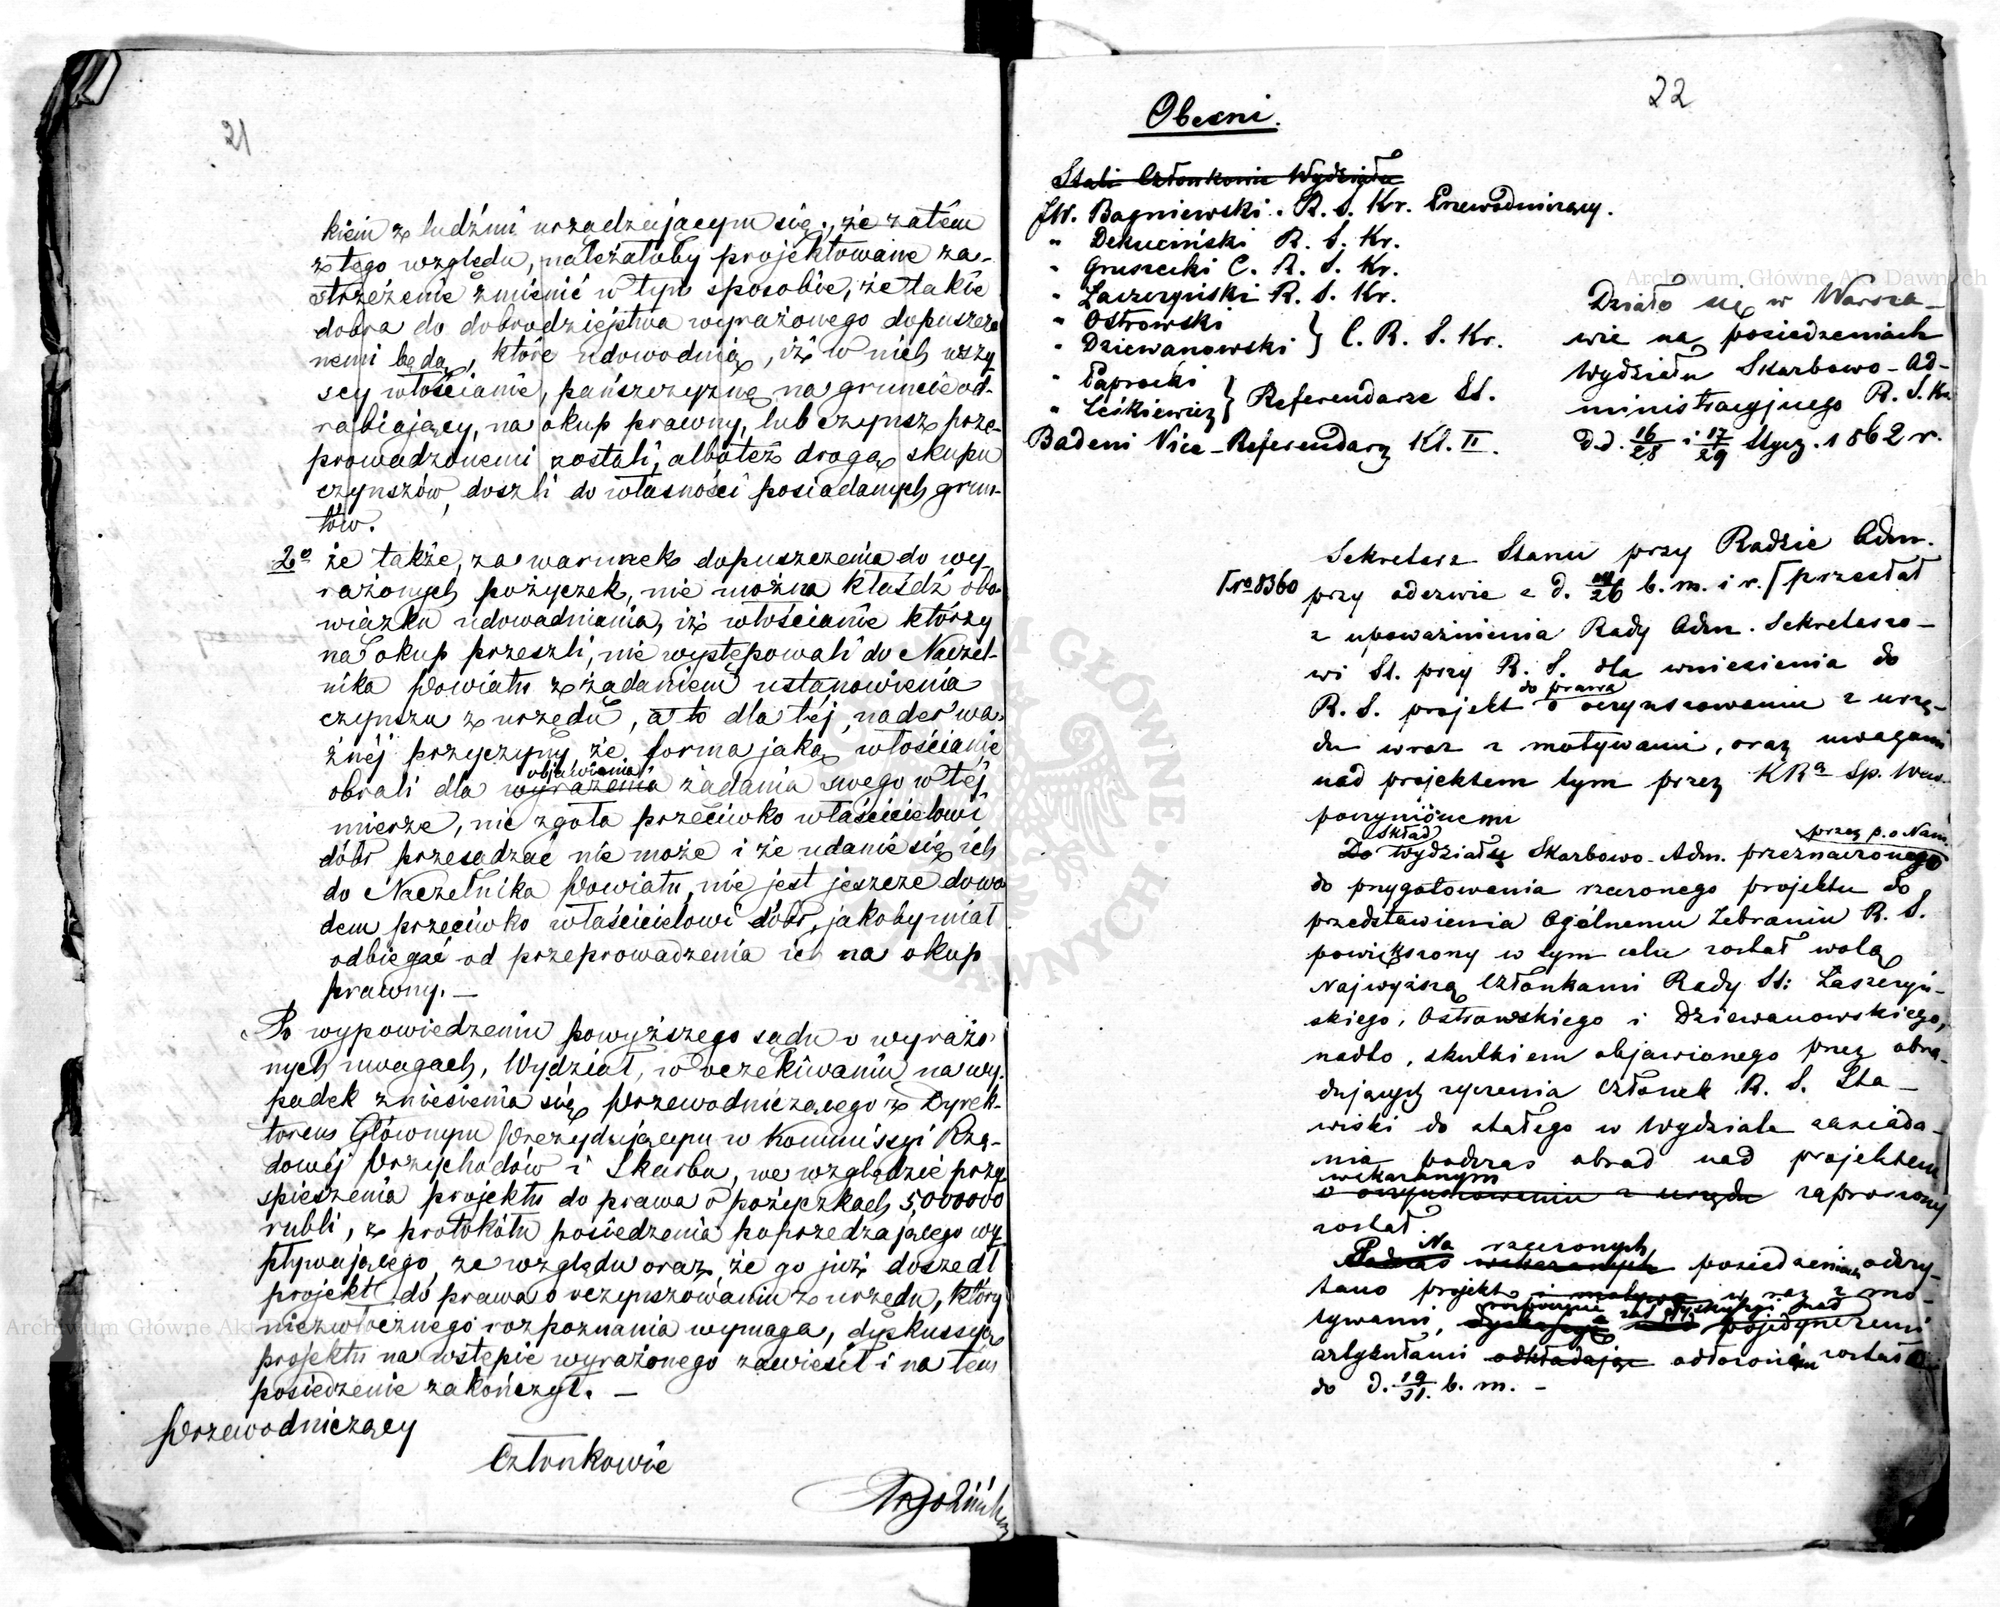 21
kiem z ludźmi urządzającym się, że zatém
z tego względu, należałoby projektowane za-
strzeżenie zmienić w tym sposobie, że takie
dobra do dobrodziejstwa wyrażonego dopuszczo
nemi będą, które udowodnią, iż w nich wszy
scy włościanie, pańszczyznę na gruncie od-
rabiający, na okup prawny, lub czynsz prze-
prowadzonemi zostali, albo téż drogą skupu
czynszów, doszli do własności posiadanych grun-
tów.
2o że także, za warunek dopuszczenia do wy
rażonych pożyczek, nie można kłaśdź obo-
wiązku udowadniania, iż włościanie którzy
na okup przeszli, nie występowali do Naczel-
nika Powiatu z żądaniem ustanowienia
czynszu z urzędu, a to dla téj, nader wa-
żnéj przyczyny że forma jaką włościanie
objawienia
obrali dla wyrażenia żądania swego w téj
mierze, nic zgoła przeciwko właścicielowi
dóbr przesądzać nie może i że udanie się ich
do Naczelnika Powiatu, nie jest jeszcze dowo
dem przeciwko właścicielowi dóbr, jakoby miał
odbiegać od przeprowadzenia ich na okup
prawny. —
Po wypowiedzeniu powyższego sądu o wyrażo
nych uwagach, Wydział, w oczekiwaniu na wy-
padek zniesienia się Przewodniczącego z Dyrek-
torem Głównym Prezydującym w Kommissyi Rzą-
dowéj Przychodów i Skarbu, we względzie przy
spieszenia projektu do prawa o pożyczkach 5,000000
rubli, z protokółu posiedzenia poprzedzającego wy
pływającego, ze względu oraz, że go już doszedł
projekt do prawa o oczynszowaniu z urzędu, który
niezwłocznego rozpoznania wymaga, dyskussyą
projektu na wstępie wyrażonego zawiesił i na tém
posiedzenie zakończył. —
Przewodniczący
Członkowie
22
Obecni.
Stali Członkowie Wydziału
JW. Bagniewski. R. S. Kr. Przewodniczący.
" Dekuciński R. S. Kr.
" Gruszecki C. R. S. Kr.
" Łaszczyński R. S. Kr.
" Ostrowski
" Dziewanowski } C. R. S. Kr.
" Paprocki
" Leśkiewicz } Referendarze St.
Badeni Vice-Referendarz Kl. II.
Działo się w Warsza-
wie na posiedzeniach
Wydziału Skarbowo-Ad-
ministracyjnego R. S. Kr.
d.d. 16/28 i 17/29 Stycz. 1862 r.
Sekretarz Stanu przy Radzie Adm.
No 8360 przy odezwie z d. /26 b. m. i r. przesłał
z upoważnienia Rady Adm. Sekretarzo-
wi St. przy R. S. dla wniesienia do
do prawa
R. S. projekt o oczynszowaniu z urzę-
du wraz z motywami, oraz uwagami
nad projektem tym przez KRą Sp. Wew.
poczynionemi
Skład przez p. o Nam.
Do Wydziału Skarbowo-Adm. przeznaczonego
do przygotowania rzeczonego projektu do
przedstawienia Ogólnemu Zebraniu R. S.
powiększony w tym celu został wolą
Najwyższą Członkami Rady St: Łaszczyń-
skiego, Ostrowskiego i Dziewanowskiego,
nadto, skutkiem objawionego przez obra-
dujących życzenia Członek R. S. Sta-
wiski do stałego w Wydziale zasiada-
nia podczas obrad nad projektem
wskazanym
o oczynszowaniu z urzędu zaproszony
został.
Na rzeczonych
Podczas wskazanych posiedzeniach odczy-
tano projekt i motywa wraz z mo-
rozpoznanie zaś dyskusyi nad
tywami, dyskusyę pojedynczemi
artykułami odkładając odłożoném został
do d. 19/31. b. m. -